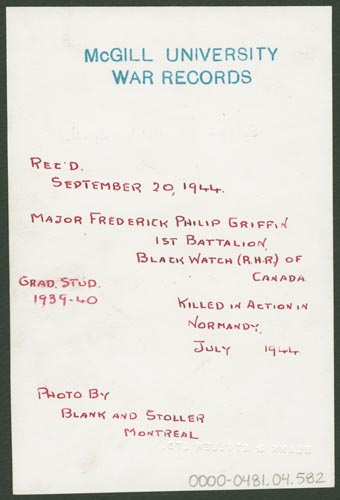 McGILL UNIVERSITY
WAR RECORDS
REC'D.
SEPTEMBER 20, 1944.
MAJOR FREDERICK PHILIP GRIFFIN
1ST BATTALION,
BLACK WATCH (R.H.R.) OF
CANADA
GRAD. STUD.
1939-40
KILLED IN ACTION IN
NORMANDY,
JULY 1944
PHOTO BY
BLANK AND STOLLER
MONTREAL
0000-0481.04.582